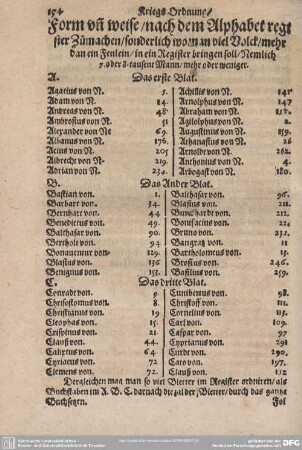 154 Kriegs Ordnung/
Form vñ weise/nach dem Alphabet regi
ster Zůmachen/sonderlich wo man viel Volck/mehr
dan ein Fenlein/in ein Register bringen soll/Nemlich
7. oder 8. tausent Mann/mehr oder weniger.
A. Das erste Blat.
Agatius von N. 5. Achillis von N. 141
Adam von N. 14. Arnolphus von N. 147
Andreas von N. 48 Abraham von N.
Ambrosius von N. 51 Agilolphus von N. 2.
Alexander von N. 69. Augustinus von N. 159.
Albanus von N. 176. Athanasius von N. 26
Acius von N. 205. Arnoldt von N. 262.
Albrecht von N. 219. Anthonius von N. 4.
Adrian von N. 234. Arbogast von N. 180.
B. Das Ander Blat.
Bastian von. 1. Balthasar von. 96.
Barbart von. 34. Blasius von. 211.
Bernhart von. 44 Burckhardt von. 211.
Benedictus von. 49. Bonifacius von. 224
Balthasar von. 90. Bruno von. 232.
Berthold von. 94 Bangratz von. 11
Bonauentur von. 129. Bartholomeus von. 13.
Blasius von. 136 Brosius von. 246.
Benignus von. 153. Basilius von. 259.
C. Das dritte Blat.
Conradt von. 9. Cunibertus von. 98.
Chrisostomus von. 8. Christoff von. 111.
Christianus von. 19 Cornelius von. 113.
Cleophas von. 15. Carl von. 109.
Crispinus von. 21. Caspar von. 97
Clauß von. 44. Cyprianus von. 291
Calixtus von. 64. Curdt von. 290.
Cyriacus von. 72 Cato von. 197.
Clemens von. 72. Clauß von. 112
Dergleichen mag man so viel Bletter im Register ordniren/als
Buchstaben im A. B. C. darnach die zal der Bletter/durch das gantz
Buchsetzen. Fol